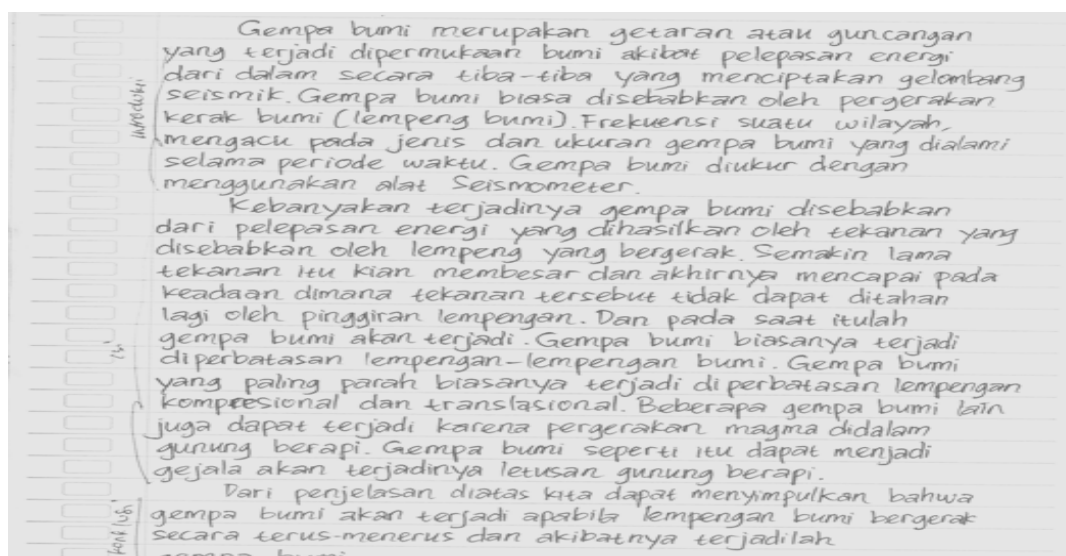 Gempa bumi merupakan getaran atau guncangan
yang terjadi dipermukaan bumi akibat pelepasan energi
dari dalam secara tiba-tiba yang menciptakan gelombang
seismik. Gempa bumi biasa disebabkan oleh pergerakan
kerak bumi (lempeng bumi). Frekuensi suatu wilayah,
mengacu pada jenis dan ukuran gempa bumi yang dialami
selama periode waktu. Gempa bumi diukur dengan
menggunakan alat Seismometer.
Kebanyakan terjadinya gempa bumi disebabkan
dari pelepasan energi yang dihasilkan oleh tekanan yang
disebabkan oleh lempeng yang bergerak. Semakin lama
tekanan itu kian membesar dan akhirnya mencapai pada
keadaan dimana tekanan tersebut tidak dapat ditahan
lagi oleh pinggiran lempengan. Dan pada saat itulah
gempa bumi akan terjadi. Gempa bumi biasanya terjadi
diperbatasan lempengan-lempengan bumi. Gempa bumi
yang paling parah biasanya terjadi diperbatasan lempengan
kompresional dan translasional. Beberapa gempa bumi lain
juga dapat terjadi karena pergerakan magma didalam
gunung berapi. Gempa bumi seperti itu dapat menjadi
gejala akan terjadinya letusan gunung berapi.
Dari penjelasan diatas kita dapat menyimpulkan bahwa
gempa bumi akan terjadi apabila lempengan bumi bergerak
secara terus-menerus dan akibatnya terjadilah
gempa bumi
isi